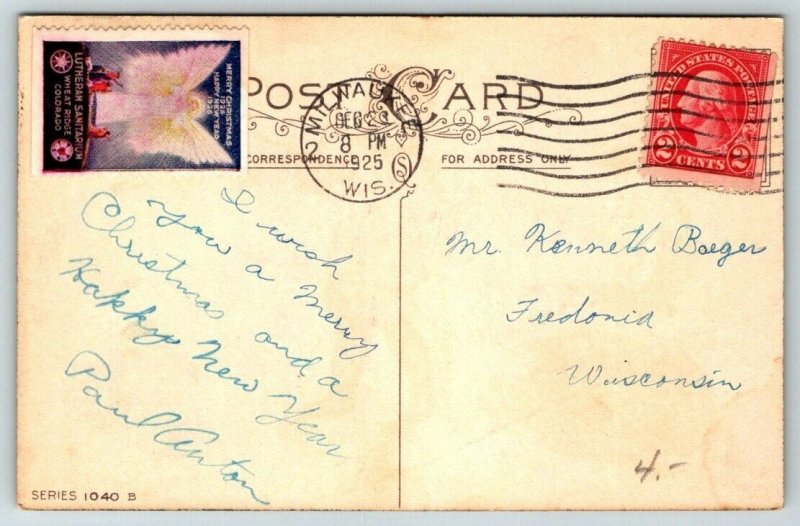 MERRY CHRISTMAS
HAPPY NEW YEAR
LUTHERAN SANITARIUM
WHEAT RIDGE
COLORADO
POST CARD
CORRESPONDENCE
FOR ADDRESS ONLY
MILWAUKEE
DEC
8 PM
1925
WIS.
2
UNITED STATES POSTAGE
2 CENTS 2
I wish
You a Merry
Christmas and a
Happy New Year
Paul Anton
Mr. Kenneth Baeger
Fredonia
Wisconsin
4.-
SERIES 1040 B